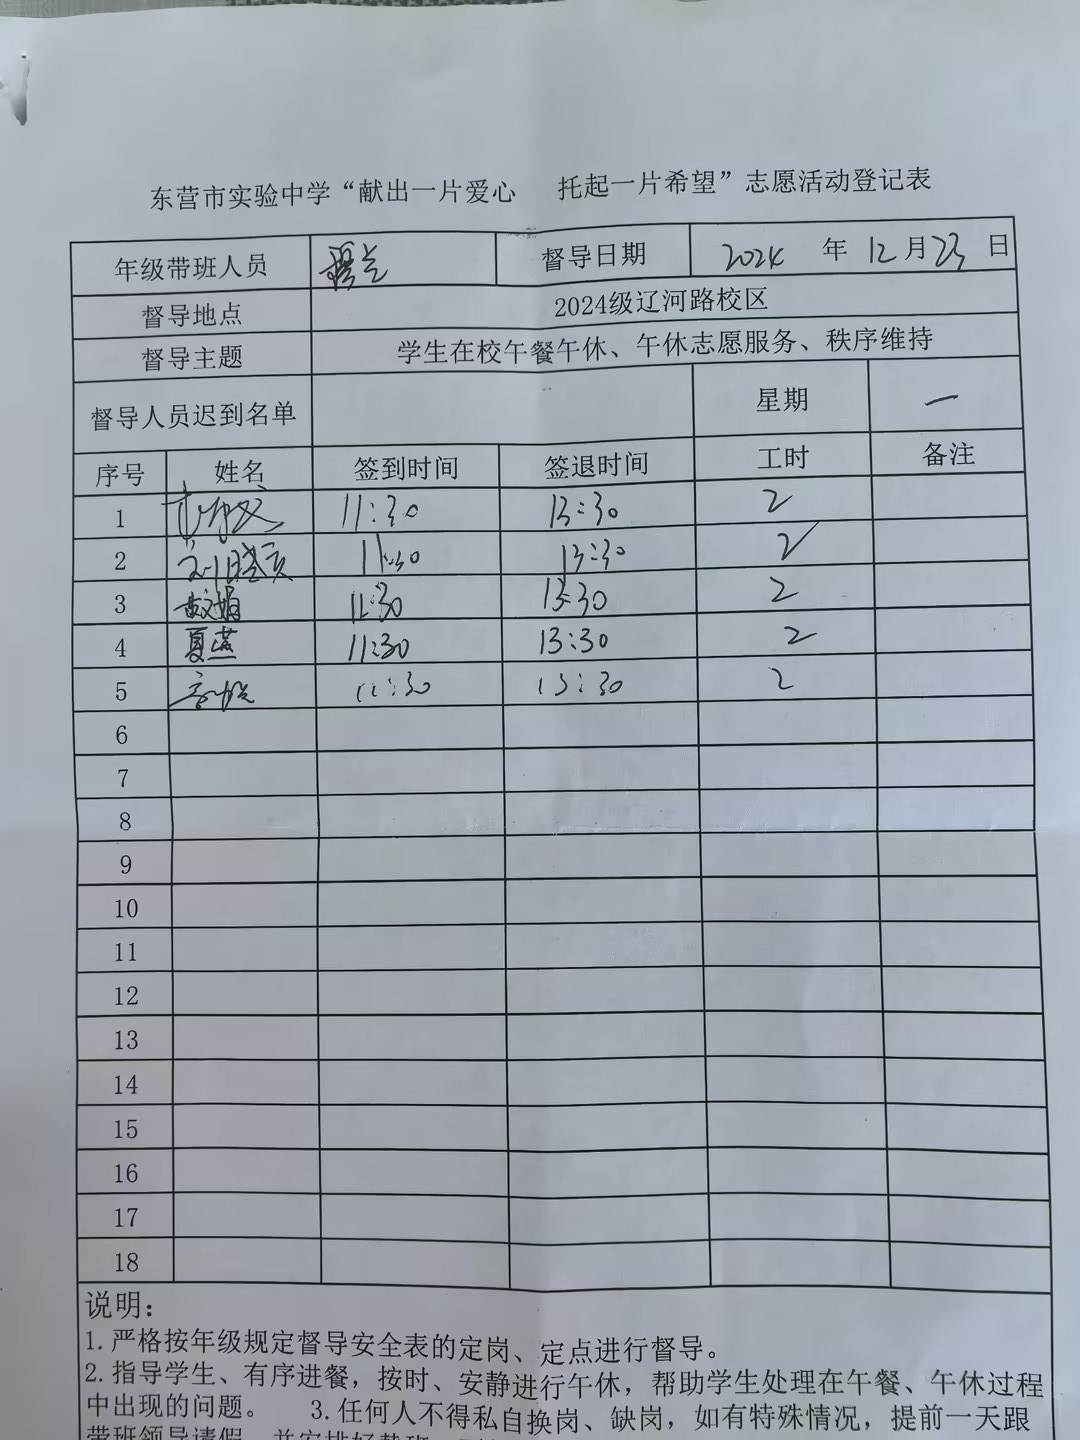 东营市实验中学“献出一片爱心 托起一片希望”志愿活动登记表
年级带班人员 督导日期 2024 年 12 月 23 日
督导地点 2024级辽河路校区
督导主题 学生在校午餐午休、午休志愿服务、秩序维持
督导人员迟到名单 星期 一
序号 姓名 签到时间 签退时间 工时 备注
1 11:30 13:30 2
2 11:30 13:30 2
3 11:30 13:30 2
4 夏燕 11:30 13:30 2
5 11:30 13:30 2
6
7
8
9
10
11
12
13
14
15
16
17
18
说明：
1.严格按年级规定督导安全表的定岗、定点进行督导。
2.指导学生、有序进餐，按时、安静进行午休，帮助学生处理在午餐、午休过程
中出现的问题。 3.任何人不得私自换岗、缺岗，如有特殊情况，提前一天跟
带班领导请假，并安排好替班